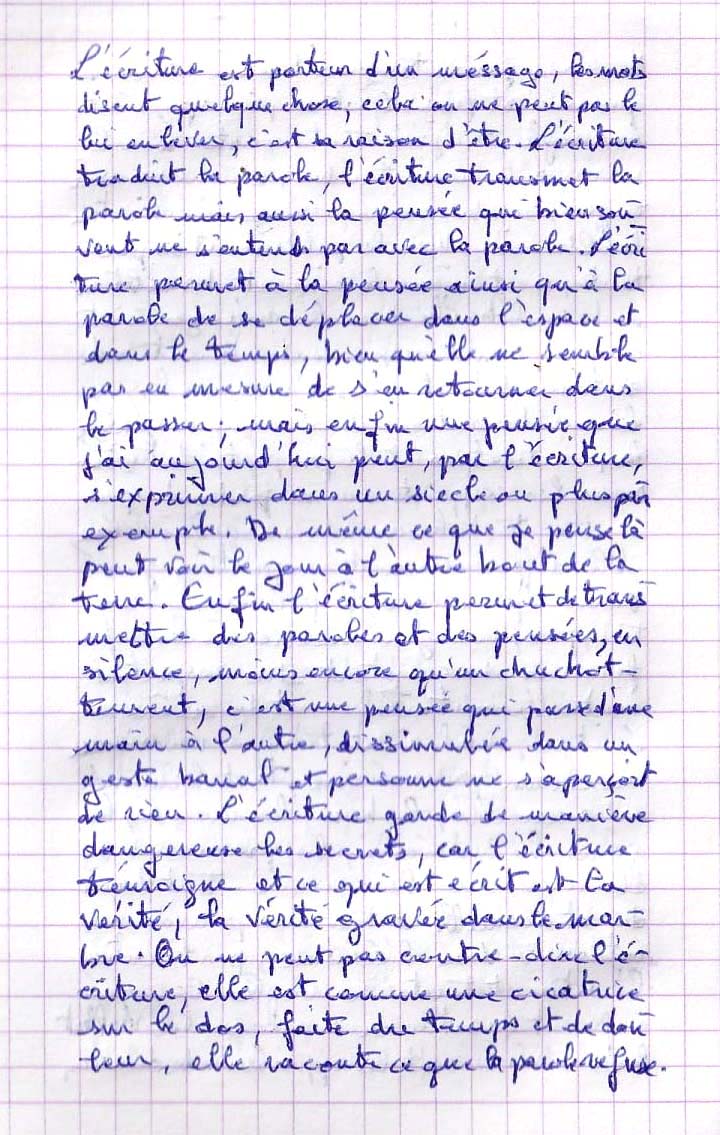 L'écriture est porteur d'un méssage, les mots
disent quelque chose, cela on ne peut pas le
lui enlever, c'est sa raison d'être. L'écriture
traduit la parole, l'écriture transmet la
parole mais aussi la pensée qui bien sou-
vent ne s'entends pas avec la parole. L'écri
ture permet à la pensée ainsi qu'à la
parole de se déplacer dans l'espace et
dans le temps, bien qu'elle ne semble
pas en mesure de s'en retourner dans
le passer; mais enfin une pensée que
j'ai aujourd'hui peut, par l'écriture,
s'exprimer dans un siècle ou plus par
exemple. De même ce que je pense là
peut voir le jour à l'autre bout de la
terre. Enfin l'écriture permet de trans
mettre des paroles et des pensées, en
silence, moins encore qu'un chuchot-
tement, c'est une pensée qui passe d'une
main à l'autre, dissimulée dans un
geste banal et personne ne s'aperçoit
de rien. L'écriture garde de manière
dangereuse les secrets, car l'écriture
témoigne et ce qui est écrit est la
vérité, la vérité gravée dans le mar-
bre. On ne peut pas contre-dire l'é-
criture, elle est comme une cicatrice
sur le dos, faite de temps et de dou
leur, elle raconte ce que la parole refuse.